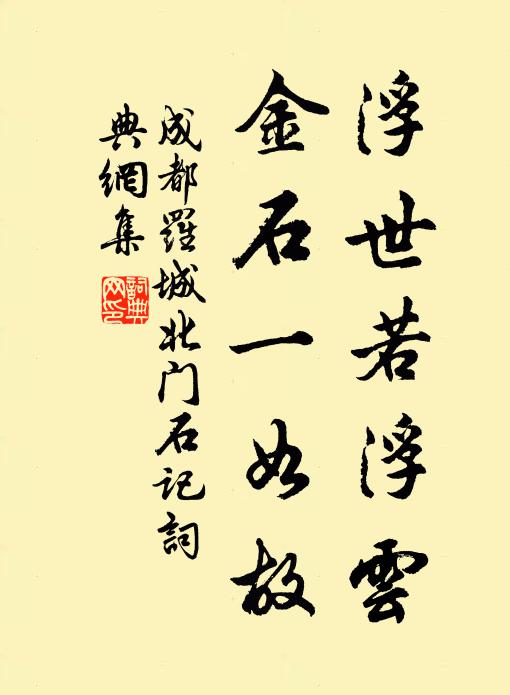 浮世若浮雲
金石一如故
成都羅城北门石记詞
典網集
詞典网印